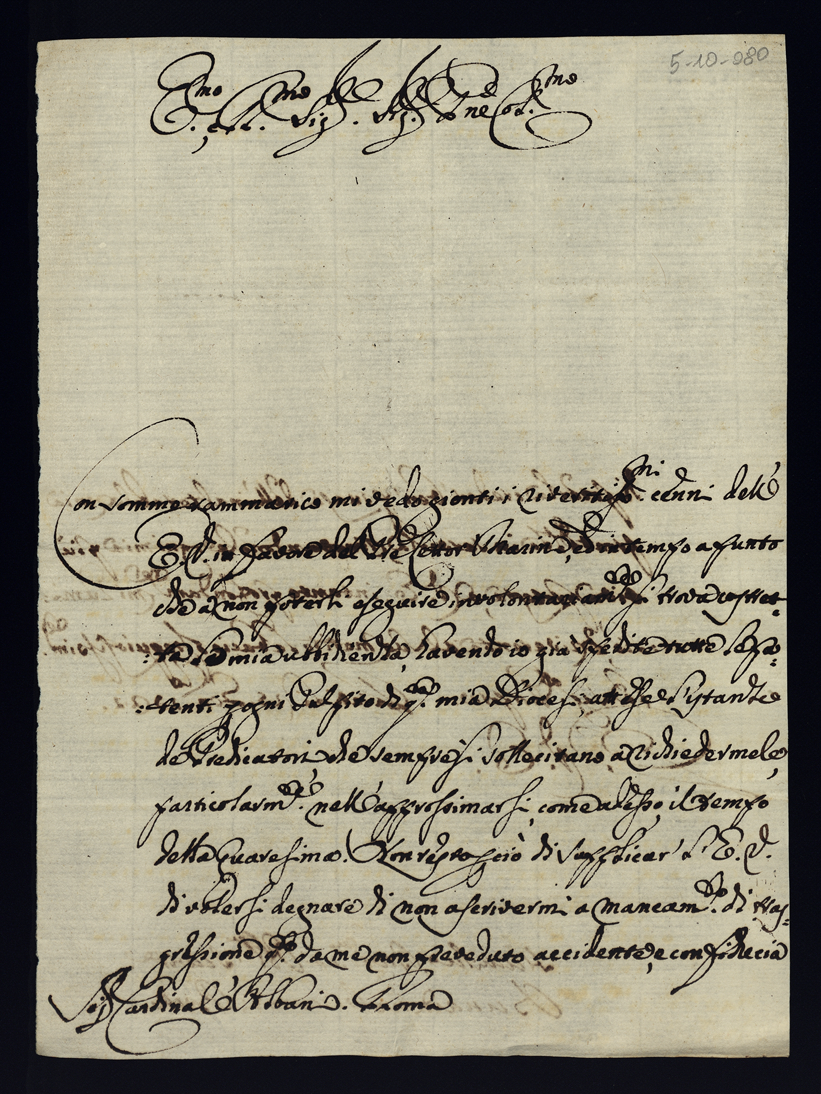 5-10-080
Em̃o, e Rm̃o Sig.r Sig.r P̃ne Col.mo
Con sommo rammarico mi vedo gionti i riveritiss.mi cenni dell'
E. V. in favore del P̃re Lettor in tempo a punto
che a non poterli eseguire involontariam.te si trova costret-
ta la mia ubbidienza, havendo io già spedite tutte le Pa-
tenti p ogni Pulpito di q.ta mia Diocesi, attese l'istanze
de Predicatori, che sempre si sollecitano a richiedermele,
particolarm.te nell'approssimarsi, come adesso, il tempo
della Quaresima. Non resto p ciò di supplicar l'E. V.
di volersi degnare di non ascrivermi a mancam.to di tras-
gressione q.to da me non preveduto accidente, e con fiducia
Sig.r Cardinal Albani. Roma